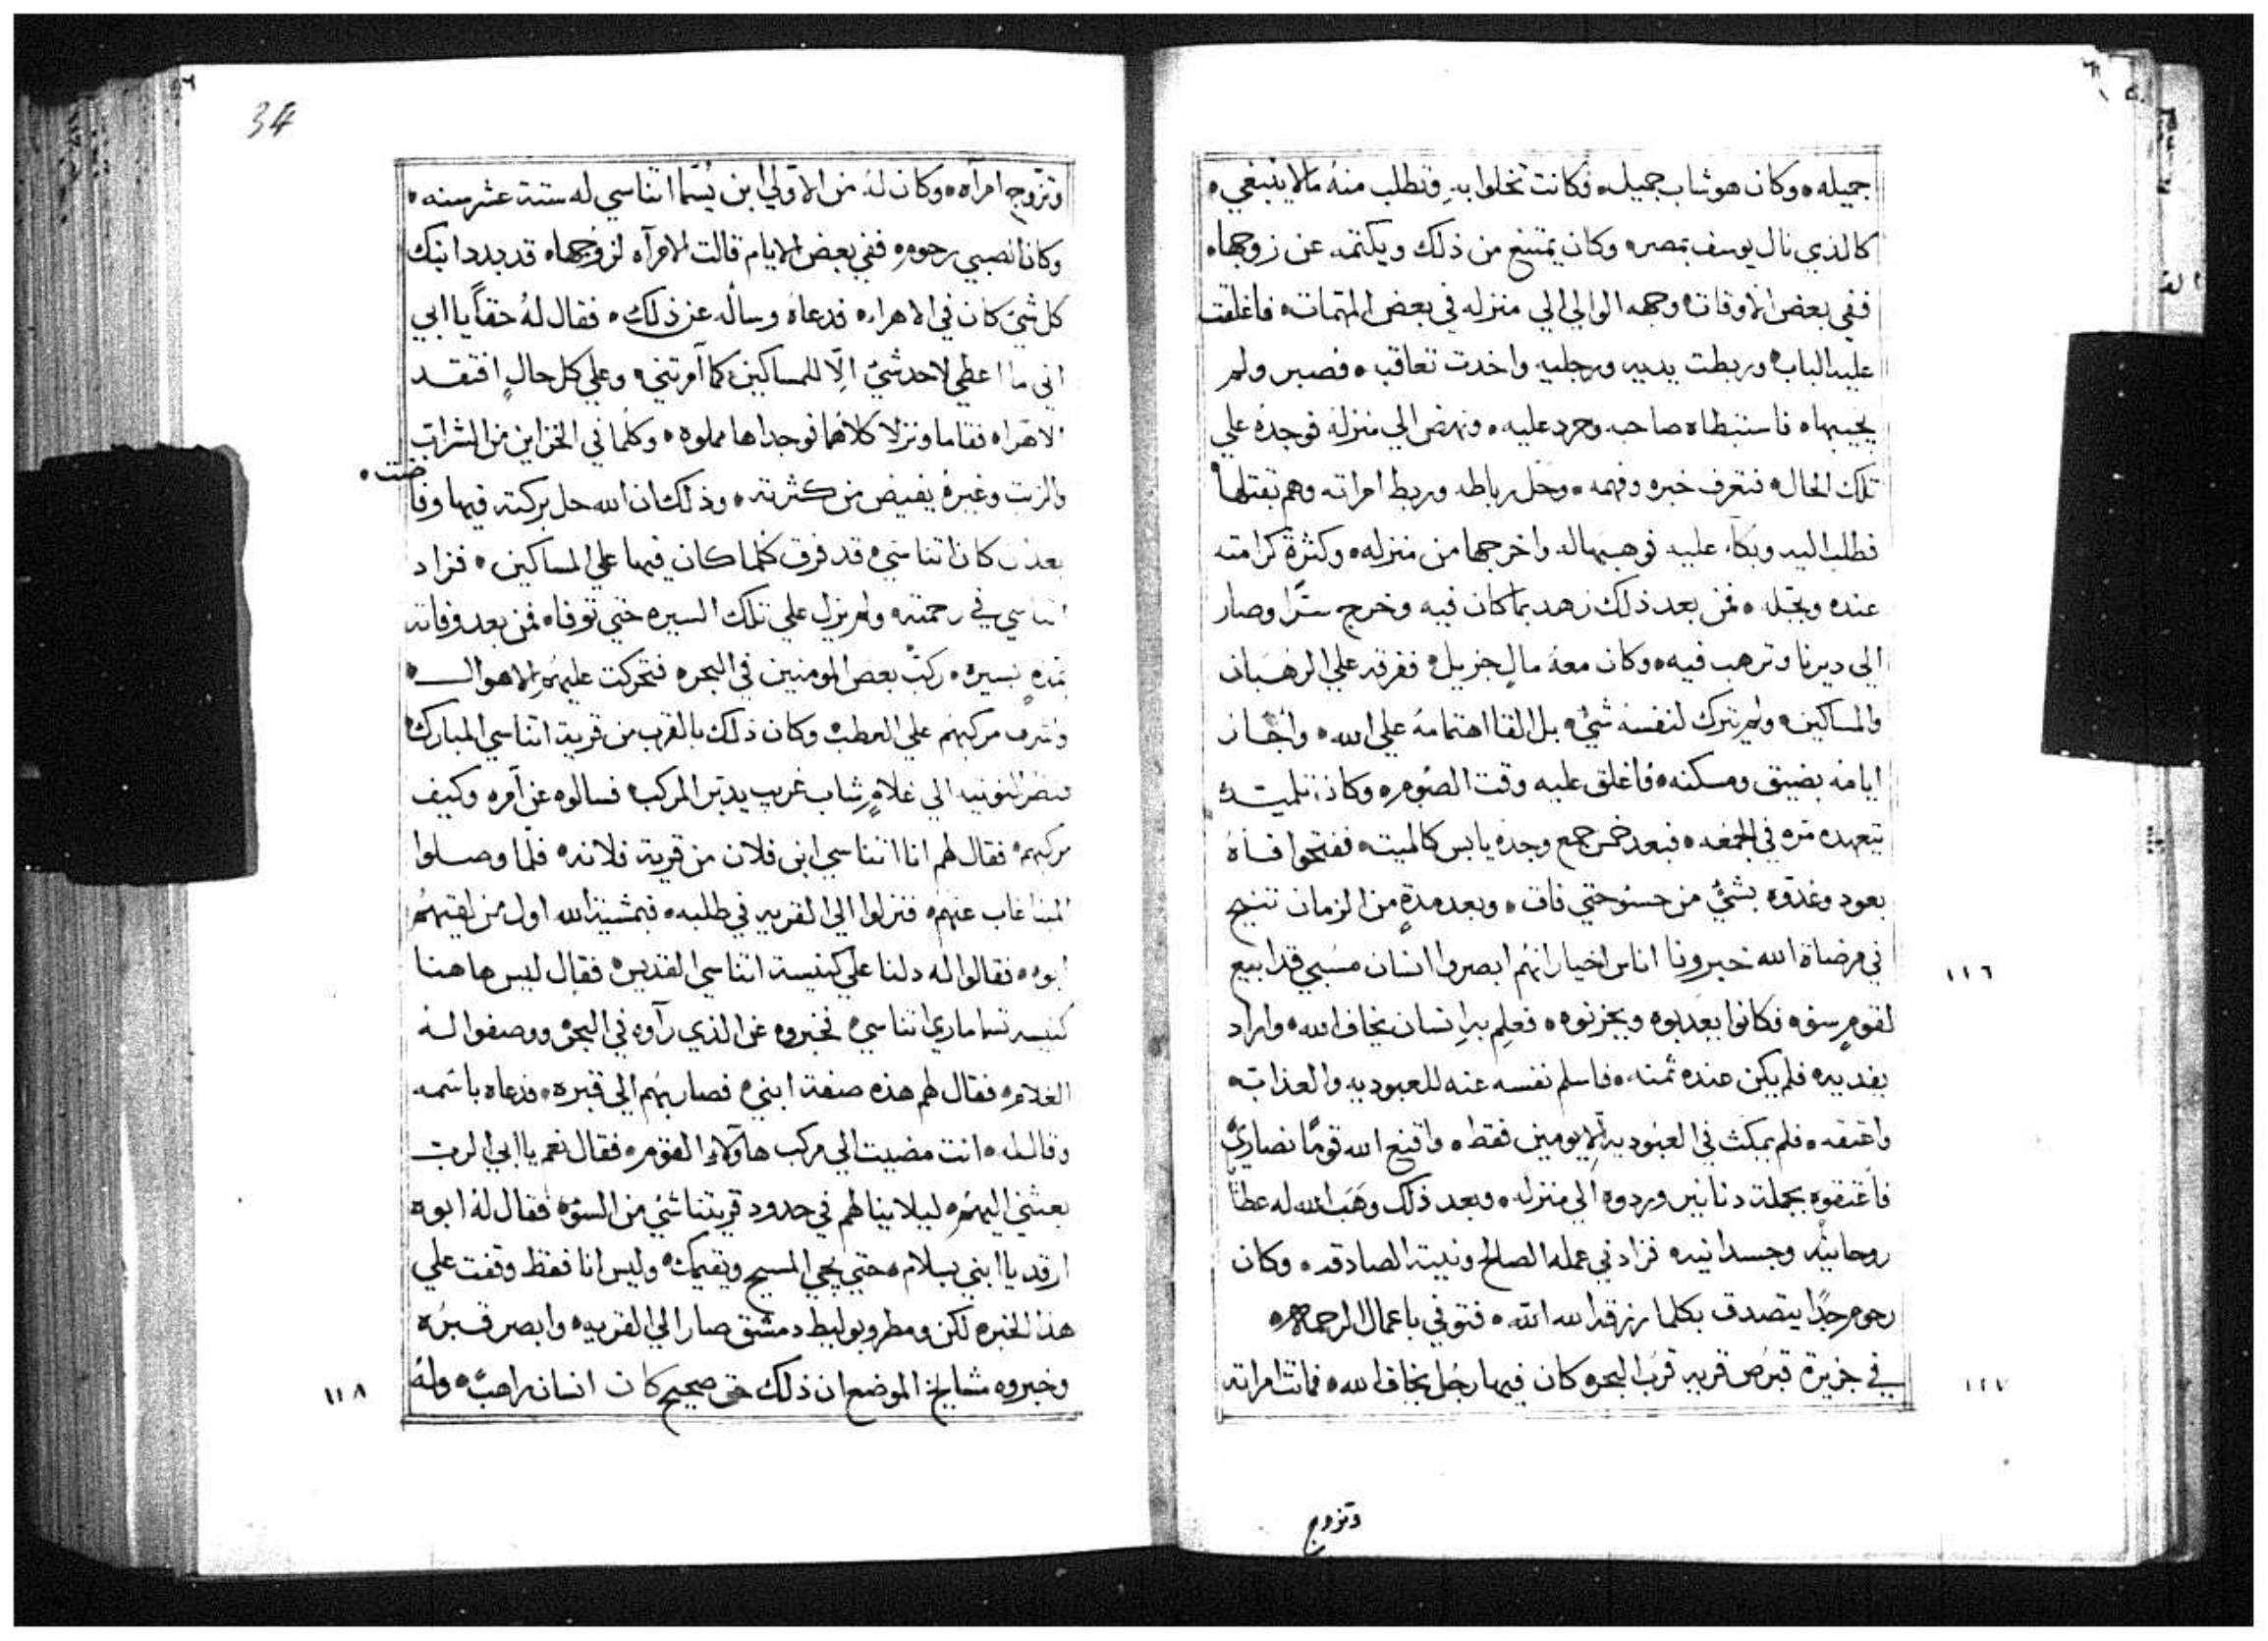 جميله ه وكان هو شاب جميل ه فكانت تخلوا به وتطلب منه ما لا ينبغي ه
كالذي نال يوسف بمصر ه وكان يمتنع من ذلك ويكتمه عن زوجها ه
ففي بعض الاوقات وجهه الوالي الي منزله في بعض المهمات ه فاغلقت
عليه الباب ه وربطت يديه ورجليه واخدت تعاقبه ه فصبر ولم
يجيبها ه فاستبطاه صاحبه وحرد عليه ه ونهض الي منزله فوجده علي
تلك الحال ه فتعرف خبره وفهمه ه وحل رباطه وربط امراته وهم بقتلها
فطلب اليه وبكاء عليه فوهبها له واخرجها من منزله ه وكثرة كرامته
عنده وبجله ه فمن بعد ذلك زهد بما كان فيه وخرج سرا وصار
الي ديرنا وترهب فيه ه وكان معه مال جزيل ه ففرقه علي الرهبان
والمساكين ه ولم يترك لنفسه شي ه بل القا اهتمامه علي الله ه واجاز
ايامه بضيق ومسكنه ه فاغلق عليه وقت الصوم ه وكان تلميده
يتعهده مره في الجمعه ه فبعد خمس جمع وجده يابس كالميت ه ففتحوا فاه
بعود وغدوه بشي من حسو حتي فاق ه وبعد مدة من الزمان تنيح
في مرضاة الله خبرونا اناس اخيار انهم ابصروا انسان مسبي قد ابيع
١١٦
لقوم سوه فكانوا يعدبوه ويحزنوه ه فعلم به انسان يخاف الله ه واراد
يفديه ه فلم يكن عنده ثمنه ه فاسلم نفسه عنه للعبوديه والعذاب ه
واعتقه ه فلم يمكث في العبوديه الا يومين فقط ه واقنع الله قوما نصاري
فاعتقوه بجملة دنانير وردوه الي منزله ه وبعد ذلك وهب الله له عطايا
روحانيه وجسدانيه فزاد في عمله الصالح ونيته الصادقه ه وكان
رحوم جدا يتصدق بكلما رزقه الله ه فتوفي باعمال الرحمه ه
في جزيرة قبرص قريه قرب البحر ه كان فيها رجل يخاف الله ه فماتت امراته
١١٧
وتزوج
34
وتزوج امرآه ه وكان له من الاولي ابن يسما اتناسي له ستة عشر سنه ه
وكان الصبي رحوم ه ففي بعض الايام قالت الامرآه لزوجها ه قد بدد ابنك
كل شي كان في الاهراء ه فدعاه وساله عن ذلك ه فقال له حقا يا ابي
اني ما اعطي لاحد شي الا للمساكين كما آمرتني ه وعلي كل حال افتقد
الاهراه فقاما ونزلا كلاهما فوجداها مملوه ه وكلما في الخزاين من الشراب
والزيت وغيره يفيض من كثرته ه وذلك ان الله حل بركته فيها وفاضت ه
بعد ان كان اتناسي قد فرق كلما كان فيها علي المساكين ه فزاد
اتناسي في رحمته ه ولم يزل علي تلك السيره حتي توفاه فمن بعد وفاته
بمدة يسيره ركب بعض المومنين في البحر ه فتحركت عليهم الاهوال ه
وشرف مركبهم علي العطب ه وكان ذلك بالقرب من قرية اتناسي المبارك ه
فنظر النوتيه الي غلام شاب غريب يدبر المركب ه فسالوه عن آمره وكيف
مركبهم ه فقال لهم انا اتناسي ابن فلان من قرية فلانه ه فلما وصلوا
المينا غاب عنهم ه فنزلوا الي القريه في طلبه ه فبمشية الله اول من لقيهم
ابوه ه فقالوا له دلنا علي كنيسة اتناسي القديس ه فقال ليس هاهنا
كنيسه تسما ماري اتناسي ه فخبروه عن الذي رآوه في البحر ه ووصفوا له
الغلام ه فقال لهم هذه صفة ابني ه فصار بهم الي قبره ه فدعاه باسمه
وقال له ه انت مضيت الي مركب هاولاء القوم ه فقال نعم يا ابي الرب
بعثني اليهم ه ليلا ينالهم في حدود قريتنا شي من السوه ه فقال له ابوه
ارقد يا ابني بسلام ه حتي يجي المسيح ويقيمك ه وليس انا فقط وقفت علي
هذا الخبر ه لكن ومطروبوليط دمشق صار الي القريه ه وابصر قبره
وخبروه مشايخ الموضع ان ذلك حق صحيح كان انسان راهب ه وله
١١٨